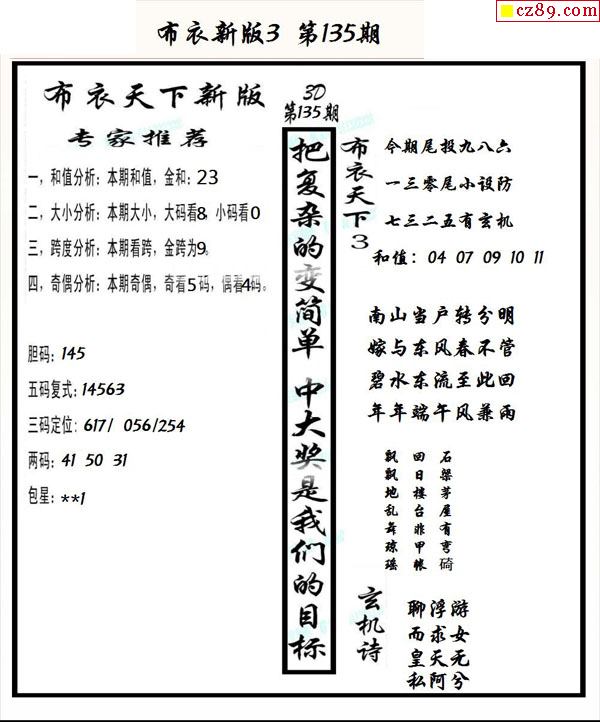 cz89.com
布衣新版3 第135期
布衣天下新版
专家推荐
一，和值分析：本期和值，金和：23
二，大小分析：本期大小，大码看8，小码看0
三，跨度分析：本期看跨，金跨为9。
四，奇偶分析：本期奇偶，奇看5码，偶看4码。
胆码：145
五码复式：14563
三码定位：617/ 056/254
两码：41 50 31
包星：**1
3D
第135期
把复杂的变简单 中大奖是我们的目标
布衣天下3
今期尾投九八六
一三零尾小设防
七三二五有玄机
和值：04 07 09 10 11
南山当户转分明
嫁与东风春不管
碧水东流至此回
年年端午风兼雨
石梁茅屋有弯碕
回日楼台非甲帐
飘飘地乱舞琼瑶
玄机诗
聊浮游
而求女
皇天无
私阿兮